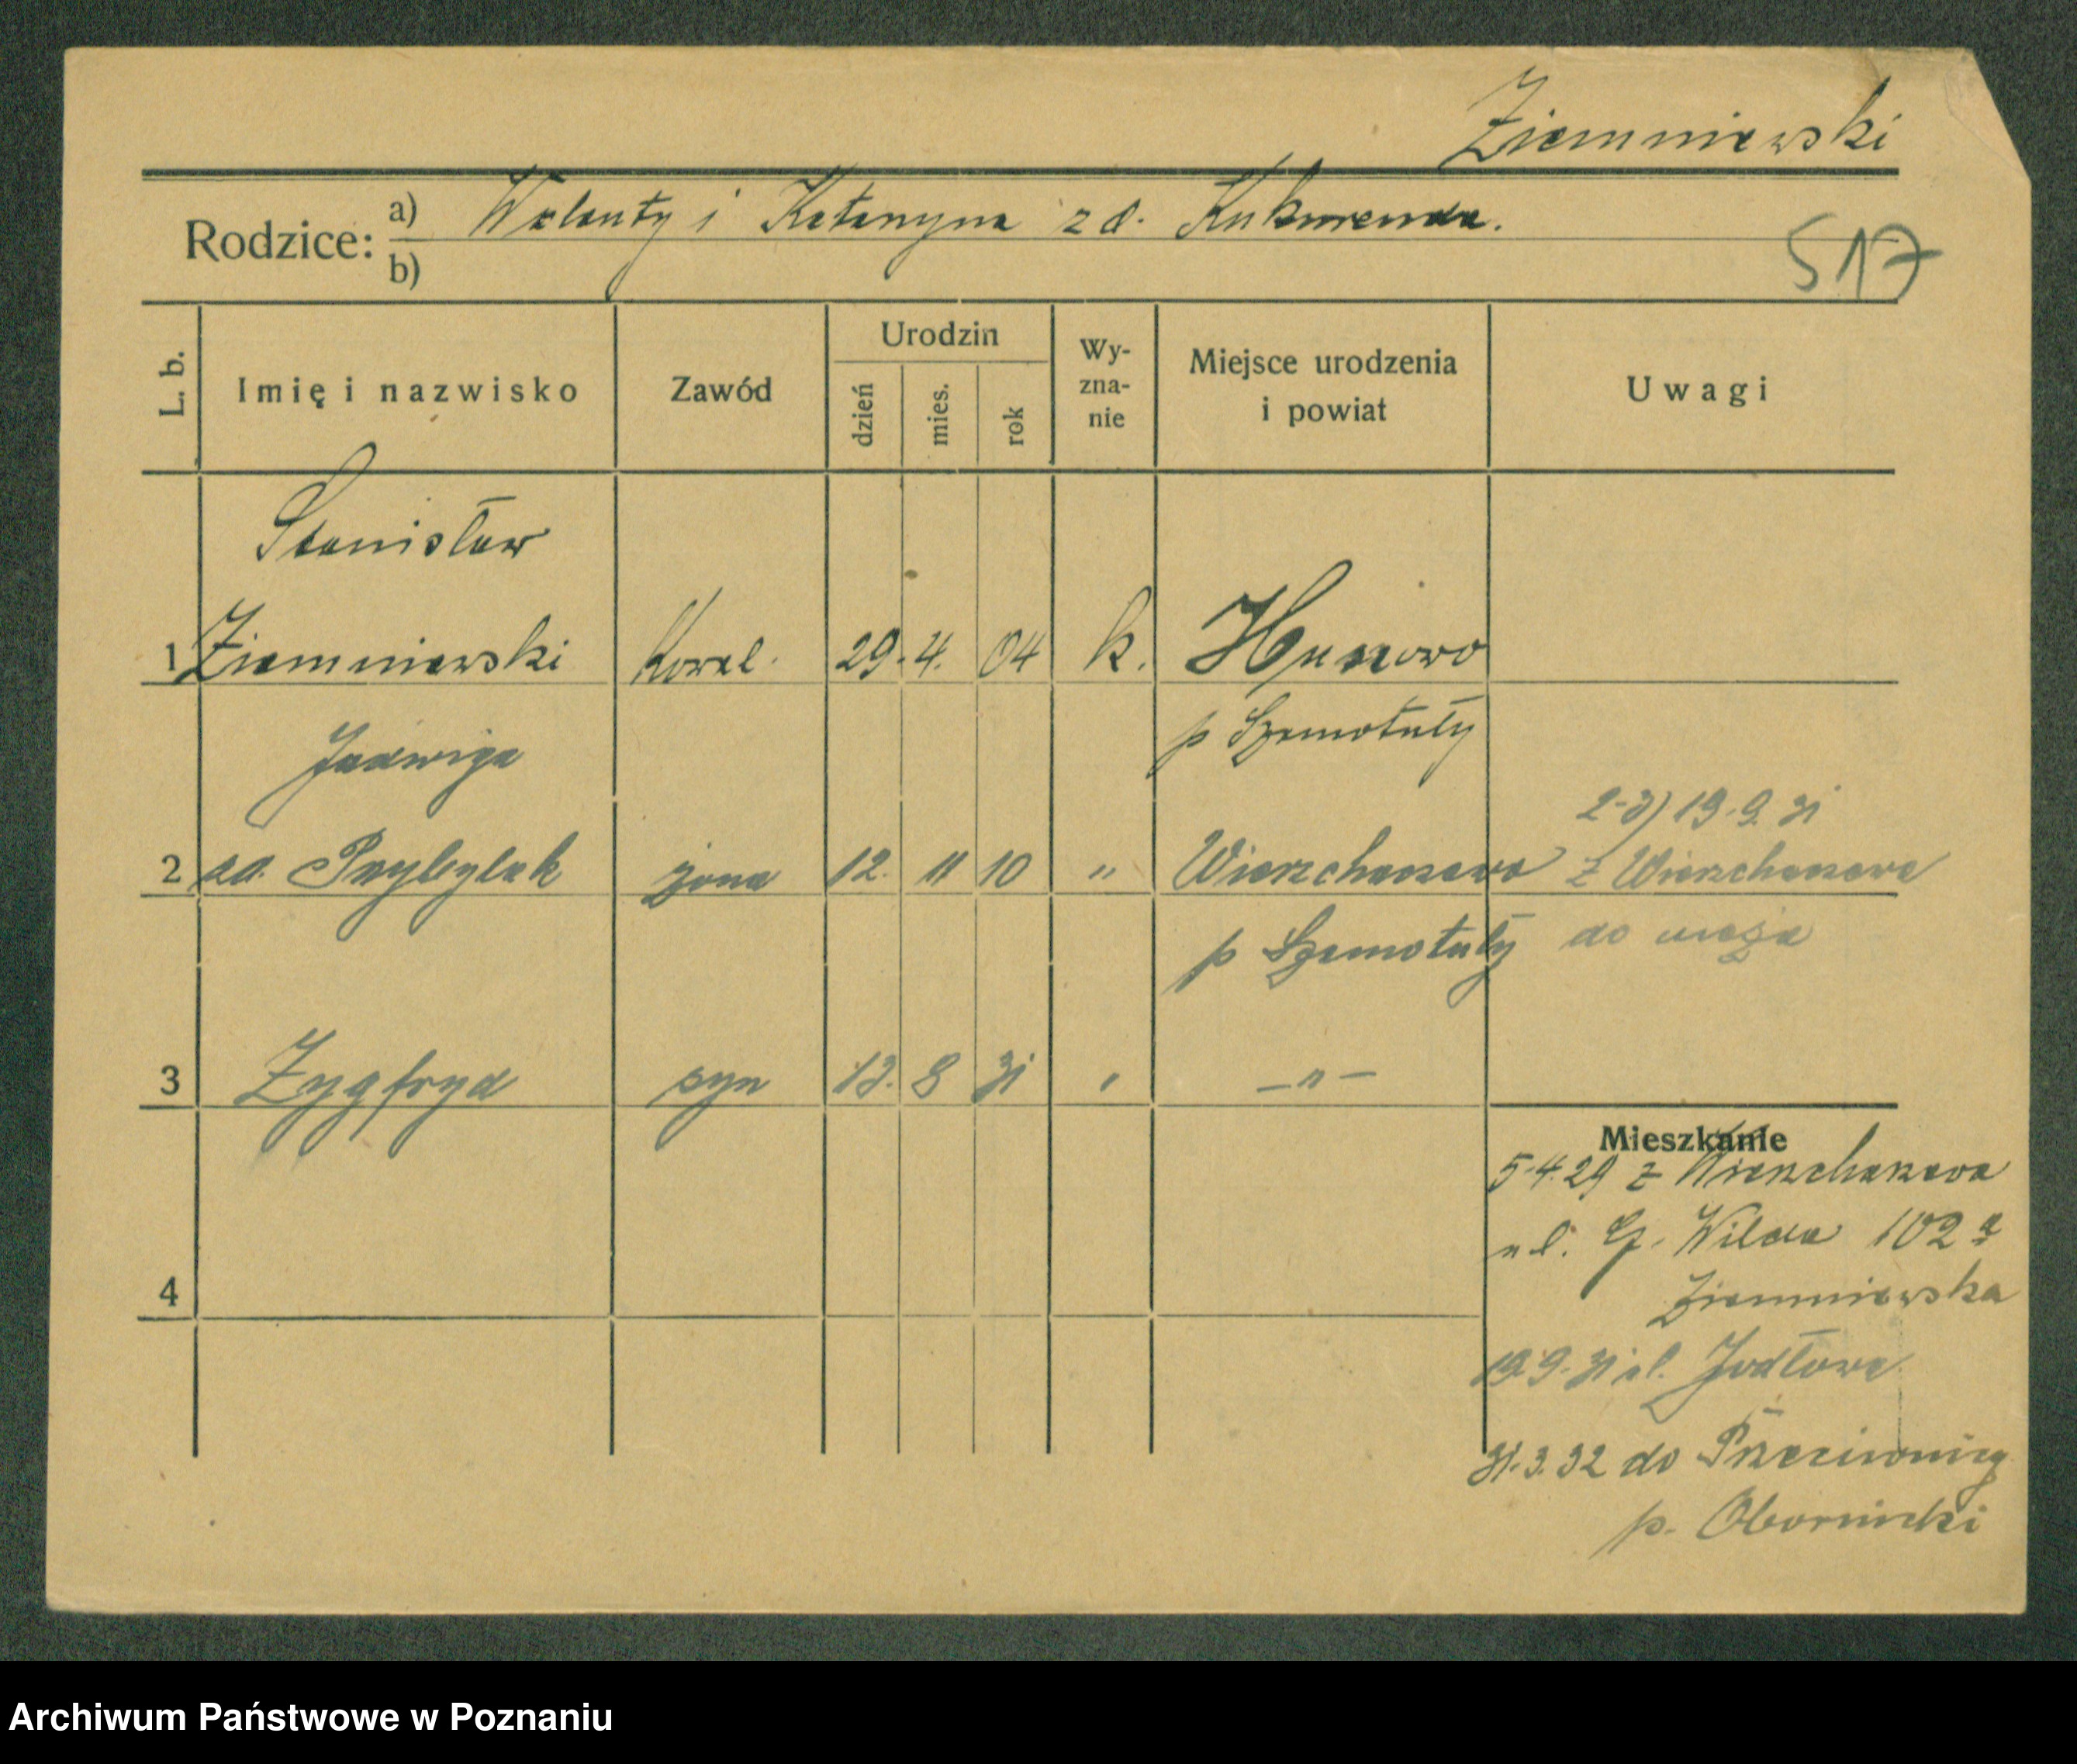 Ziemniewski
Rodzice: a) Walenty i Katarzyna z d.
b)
517
L. b.
Imię i nazwisko
Zawód
Urodzin
dzień
mies.
rok
Wy-
zna-
nie
Miejsce urodzenia
i powiat
Uwagi
Stanisław
1 Ziemniewski kowal. 29. 4. 04 k.
p Szamotuły
Jadwiga
2-3) 19.9.31
2 zd. Przybylak żona 12. 11 10 " Wierzchaczewo z Wierzchaczewa
p Szamotuły do męża
3 Zygfryd syn 13. 8 31 " —"—
Mieszkanie
5.4.29 z Wierzchaczewa
ul. G. Wilda 102a
4
Ziemniewska
19.9.31 ul. Jodłowa
31.3.32 do
p. Obornicki
Archiwum Państwowe w Poznaniu